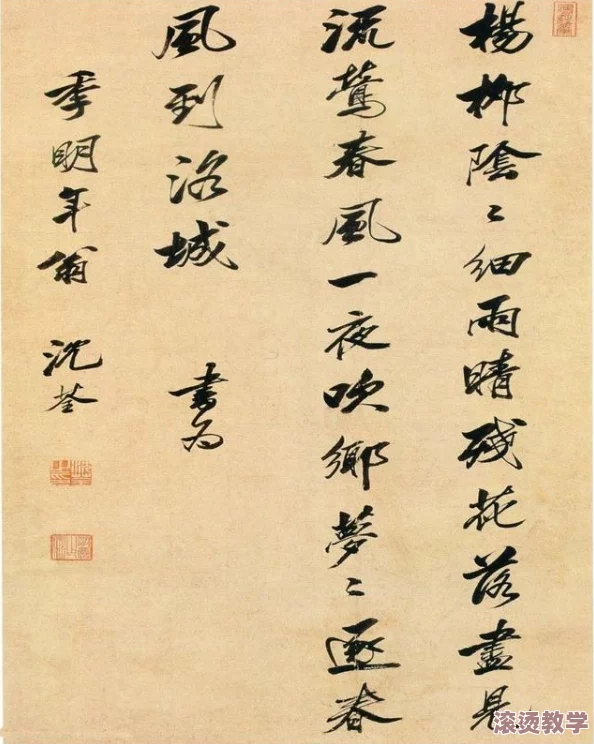 楊柳陰〻細雨晴殘花落盡見
流鶯春風一夜吹鄉夢〻逐春
風到洛城 書為
季明年翁 沈荃
滚烫教学